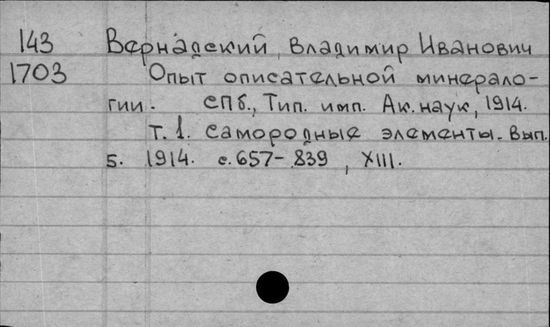 143 Вернадский, Владимир Иванович
1703 Опыт описательной минерало-
гии. СПб., Тип. имп. Ак. наук, 1914.
Т. 1. Самородные элементы. Вып.
5. 1914. с. 657-839, XIII.